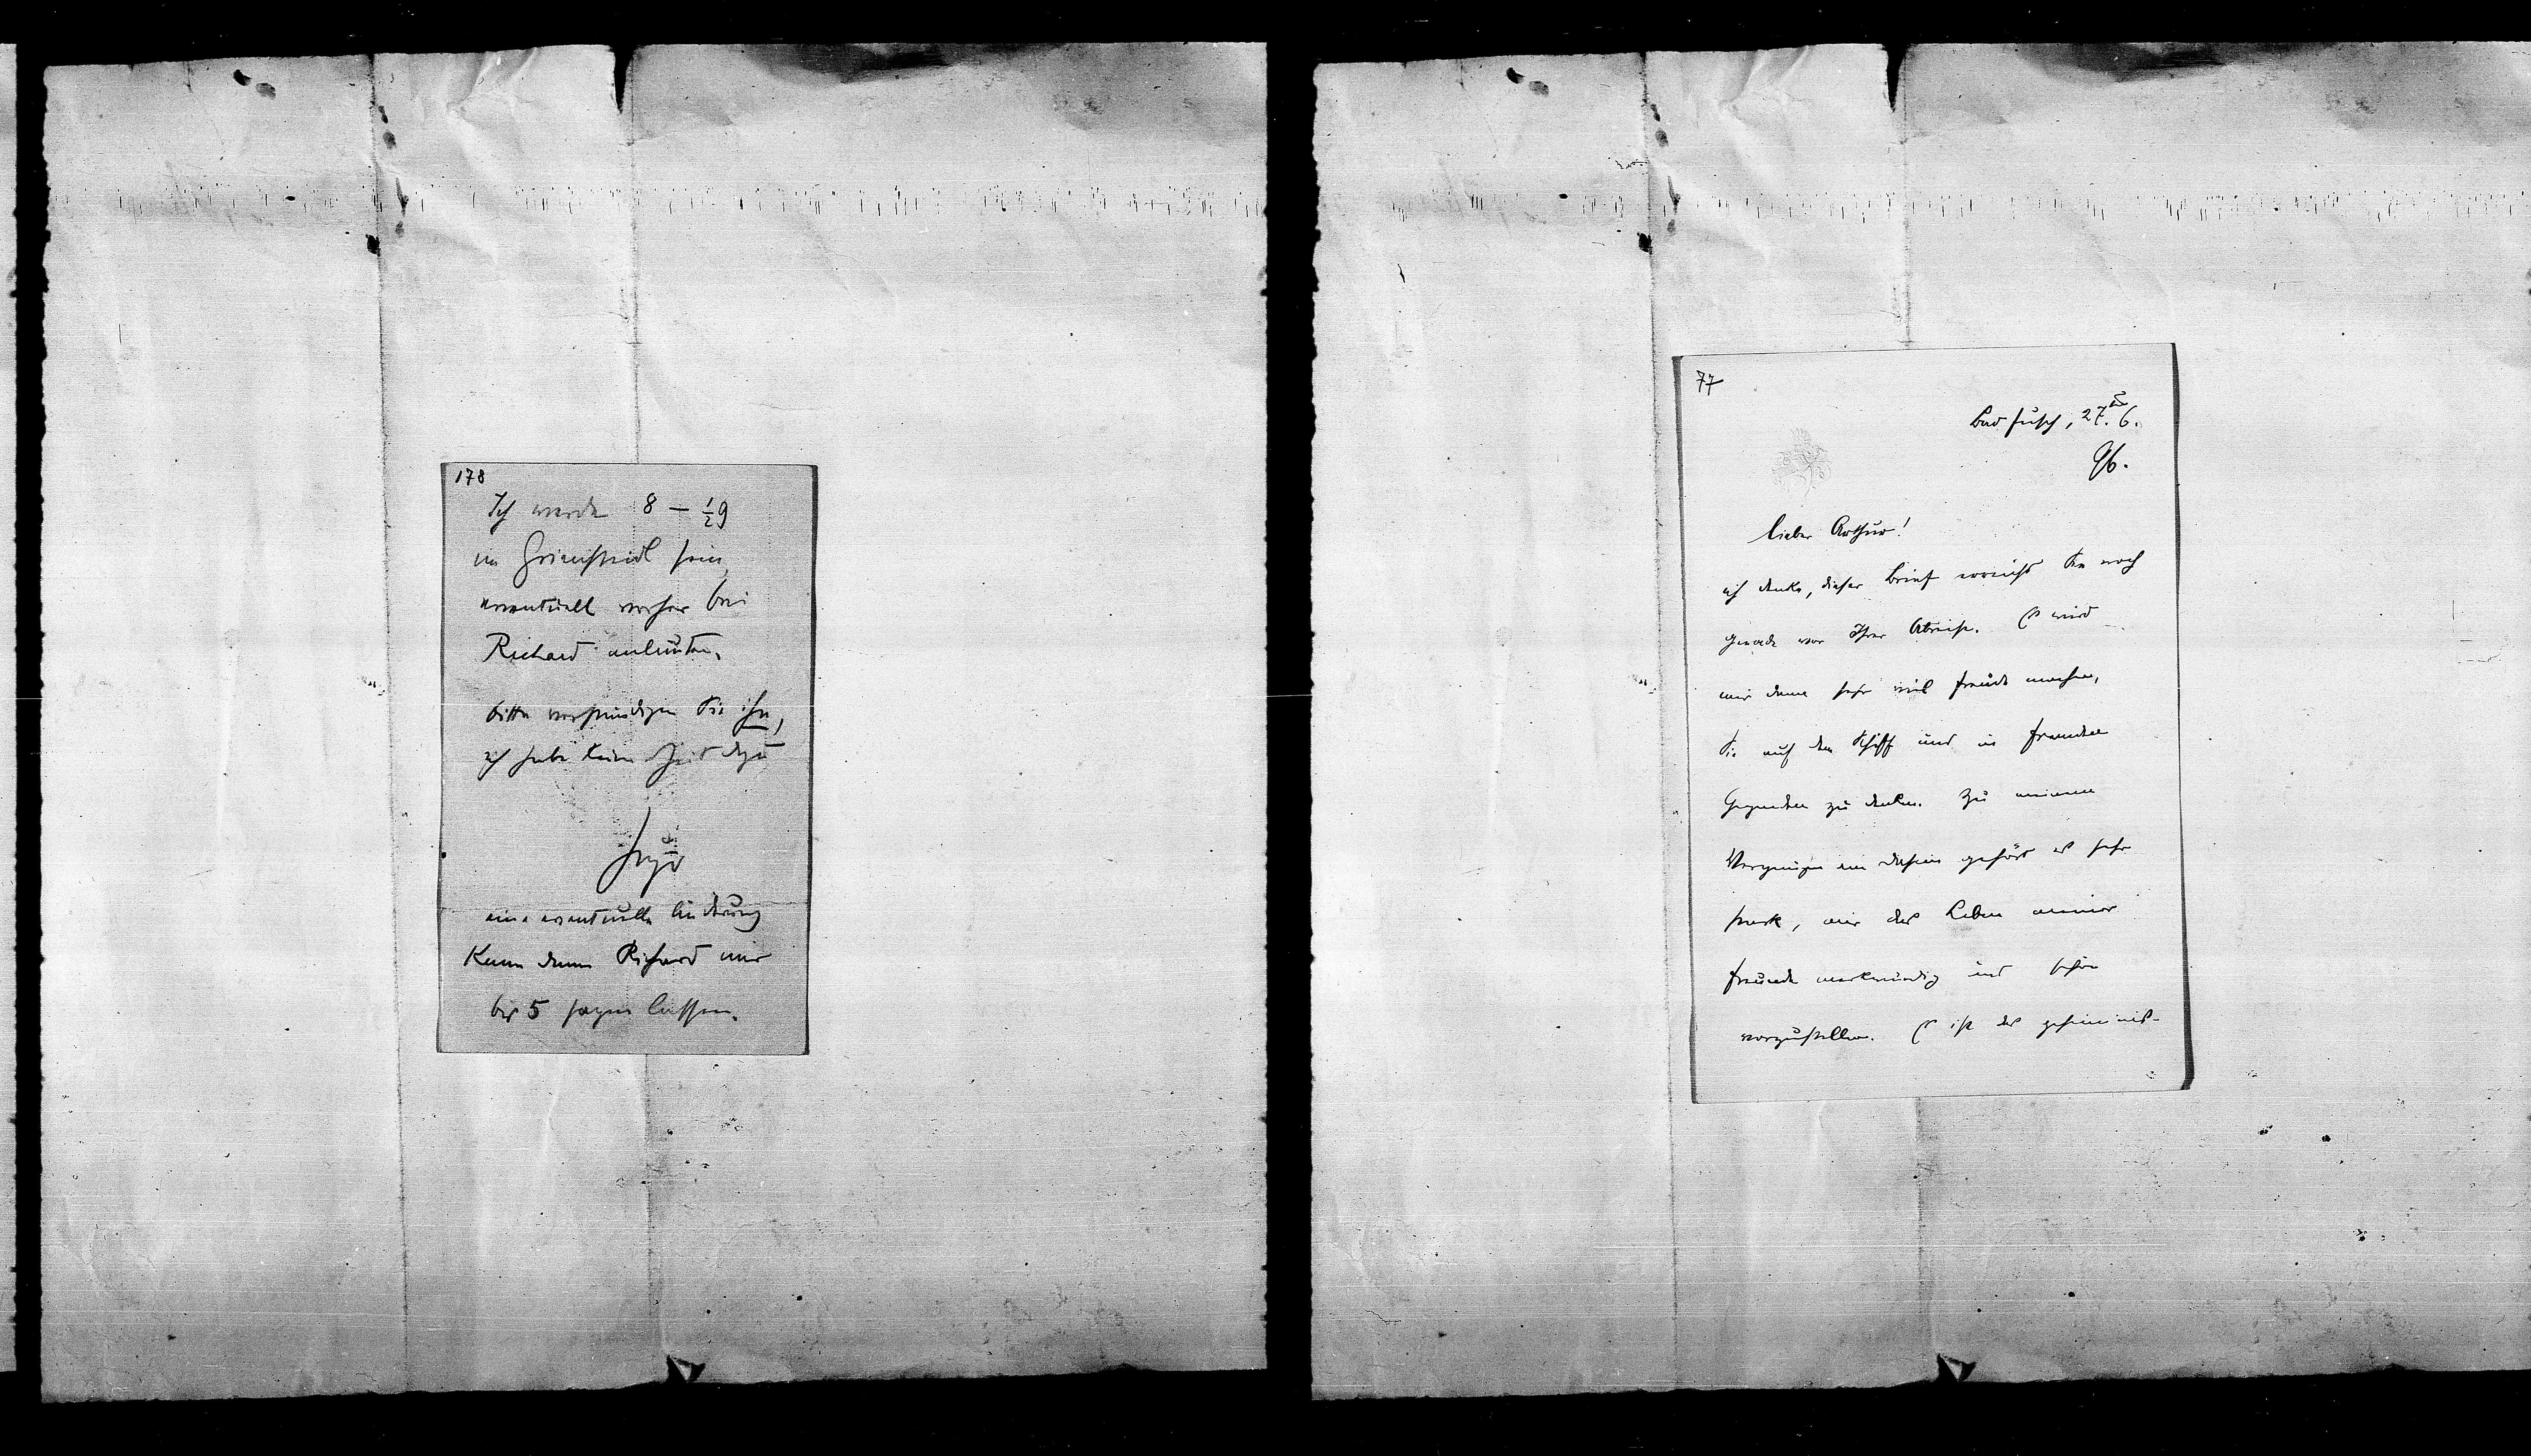 178
Ich werde 8 – ½9
im Griensteidl sein,
eventuell vorher bei
Richard anläuten.
bitte verständigen Sie ihn,
ich habe keine Zeit dazu
Hugo
eine eventuelle Änderung
kann dann Richard mir
bis 5 sagen lassen.
77
Bad Fusch, 27. 6.
96.
lieber Arthur!
ich denke, dieser Brief erreicht Sie noch
gerade vor Ihrer Abreise. Es wird
mir dann sehr viel Freude machen,
Sie auf dem Schiff und in fremden
Gegenden zu denken. Zu meinem
Vergnügen am Dasein gehört es sehr
stark, mir das Leben meiner
Freunde merkwürdig und schön
vorzustellen. Es ist das geheimnis-